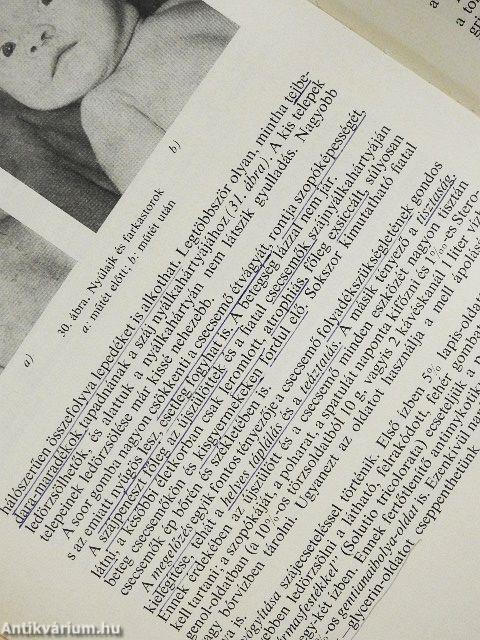 a)
b)
30. ábra. Nyúlajk és farkastorok
a: műtét előtt; b: műtét után
hálószerűen összefolyva lepedéket is alkothat. Legtöbbször olyan, mintha tejbe-
dara-maradékok tapadnának a száj nyálkahártyájához (31. ábra). A kis telepek
ledörzsölhetők, és alattuk a nyálkahártyán nem látszik gyulladás. Nagyobb
telepeinek ledörzsölése már kissé nehezebb.
A soor gomba nagyon csökkenti a csecsemő étvágyát, rontja szopóképességét,
s az emiatt nyűgös lesz, esetleg fogyhat is. A betegség lázzal nem jár.
A szájpenészt főleg az újszülöttek és a fiatal csecsemők szájnyálkahártyáján
látni, a későbbi életkorban csak leromlott, atrophiás, főleg exsiccált, súlyosan
beteg csecsemőkön és kisgyermekeken fordul elő. Sokszor kimutatható fiatal
csecsemők ép bőrén és székletében is.
A megelőzés egyik fontos tényezője a csecsemő folyadékszükségletének gondos
kielégítése, tehát a helyes táplálás és a teáztatás. A másik tényező a tisztaság.
Ennek érdekében az újszülött és a csecsemő minden eszközét nagyon tisztán
kell tartani; a szopókáját, a poharat, a spatulát naponta kifőzni és 1%-es Stero-
genol-oldatban (a 10%-os törzsoldatból 10 g, vagyis 2 kávéskanál 1 liter víz
vagy bórvízben tárolni. Ugyanezt az oldatot használja a mell ápolás
szájecseteléssel történik. Első ízben 5% lapis-oldat
ledörzsölni a látható, felrakódott, fehér gombat
(Solutio tricolorata) ecseteljük a
két ízben. Ennek fertőtlenítő antimykotik
gentianaibolya-oldat is. Ezenkívül na
glycerin-oldatot cseppenthetünk
Antikvárium.hu